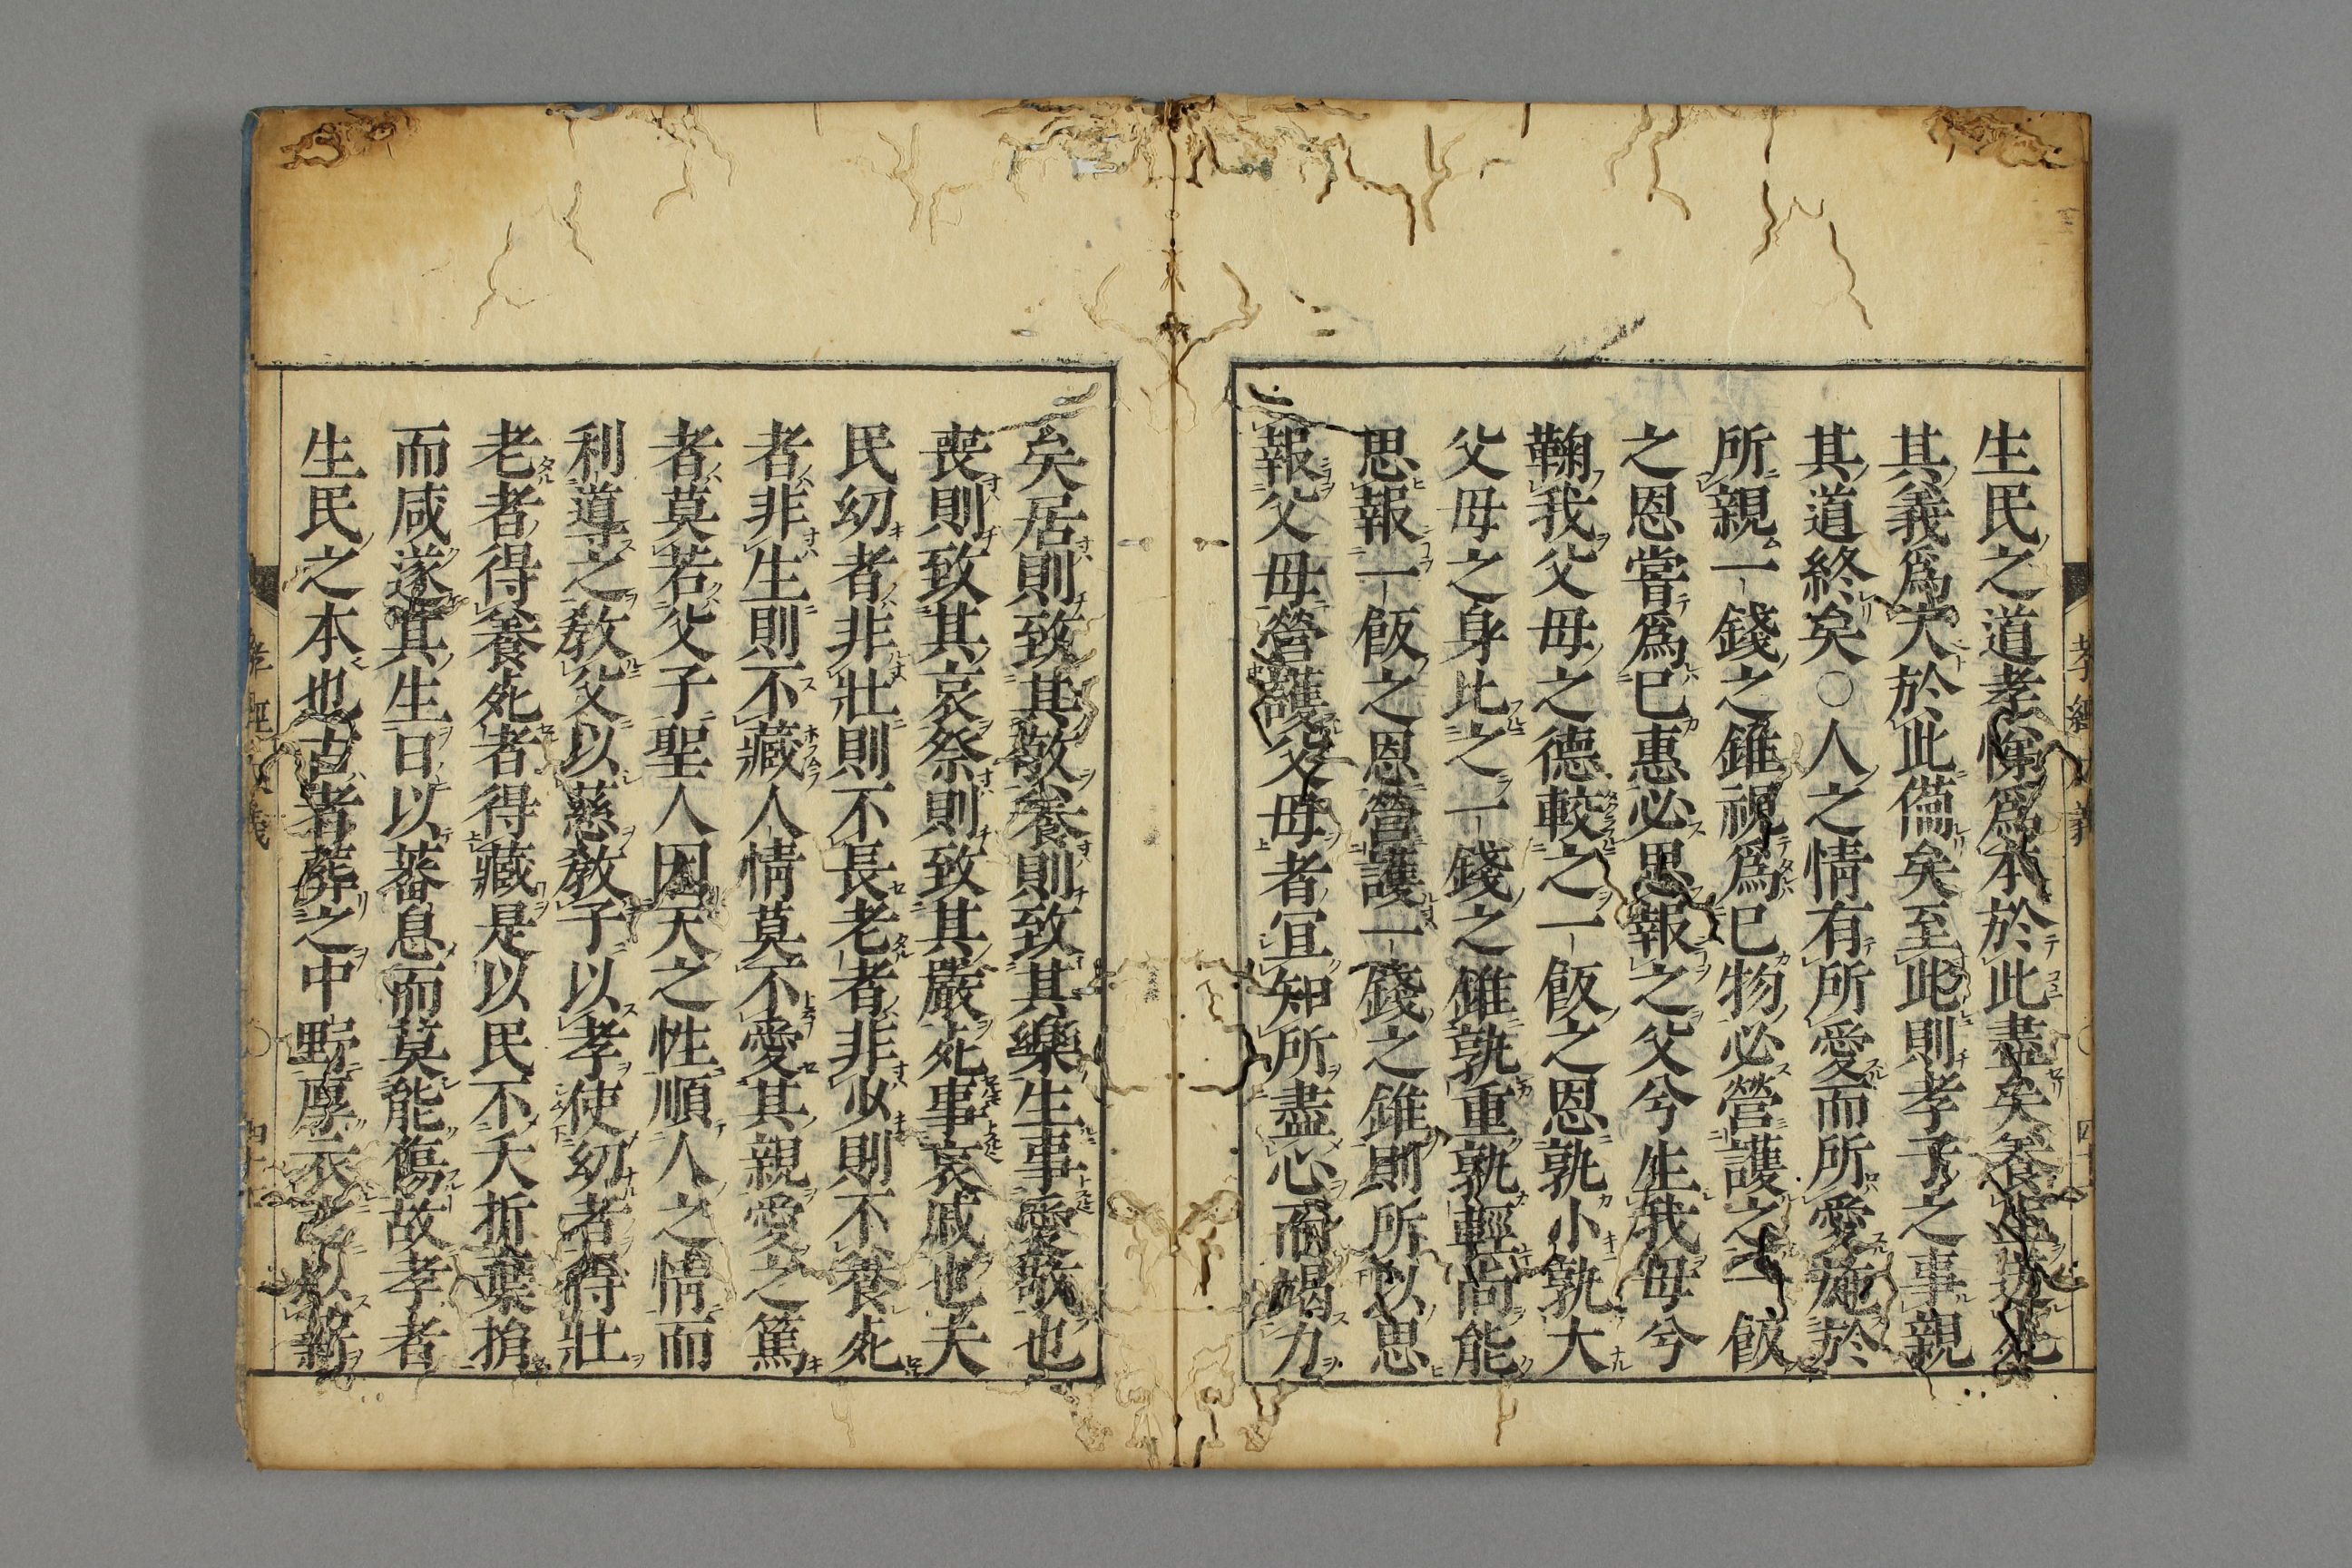 生民之道孝悌爲本於此盡矣養生
其義爲大於此備矣至此則孝子之事親
其道終矣○人之情有所愛而所愛施於
所親一錢之錐視爲已物必營護之一飯
之恩嘗爲已惠必思報之父兮生我母兮
鞠我父母之德較之一飯之恩孰小孰大
父母之身比之一錢之錐孰重孰輕尚能
思報一飯之恩營護一錢之錐則所以思
報父母營護父母者宜知所盡心而竭力
矣居則致其敬養則致其樂生事愛敬也
喪則致其哀祭則致其嚴死事哀戚也夫
民幼者非壯則不長老者非少則不養死
者非生則不藏人情莫不愛其親愛之篤
者莫若父子聖人因天之性順人之情而
利導之敎父以慈敎子以孝使幼者得壯
老者得養死者得藏是以民不夭折棄捐
而咸遂其生日以蕃息而莫能傷故孝者
生民之本也古者葬之中野厚衣之以薪